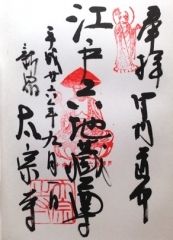 奉拝 甲州道中
江戸六地蔵尊
平成廿六年九月 日
新宿 太宗寺